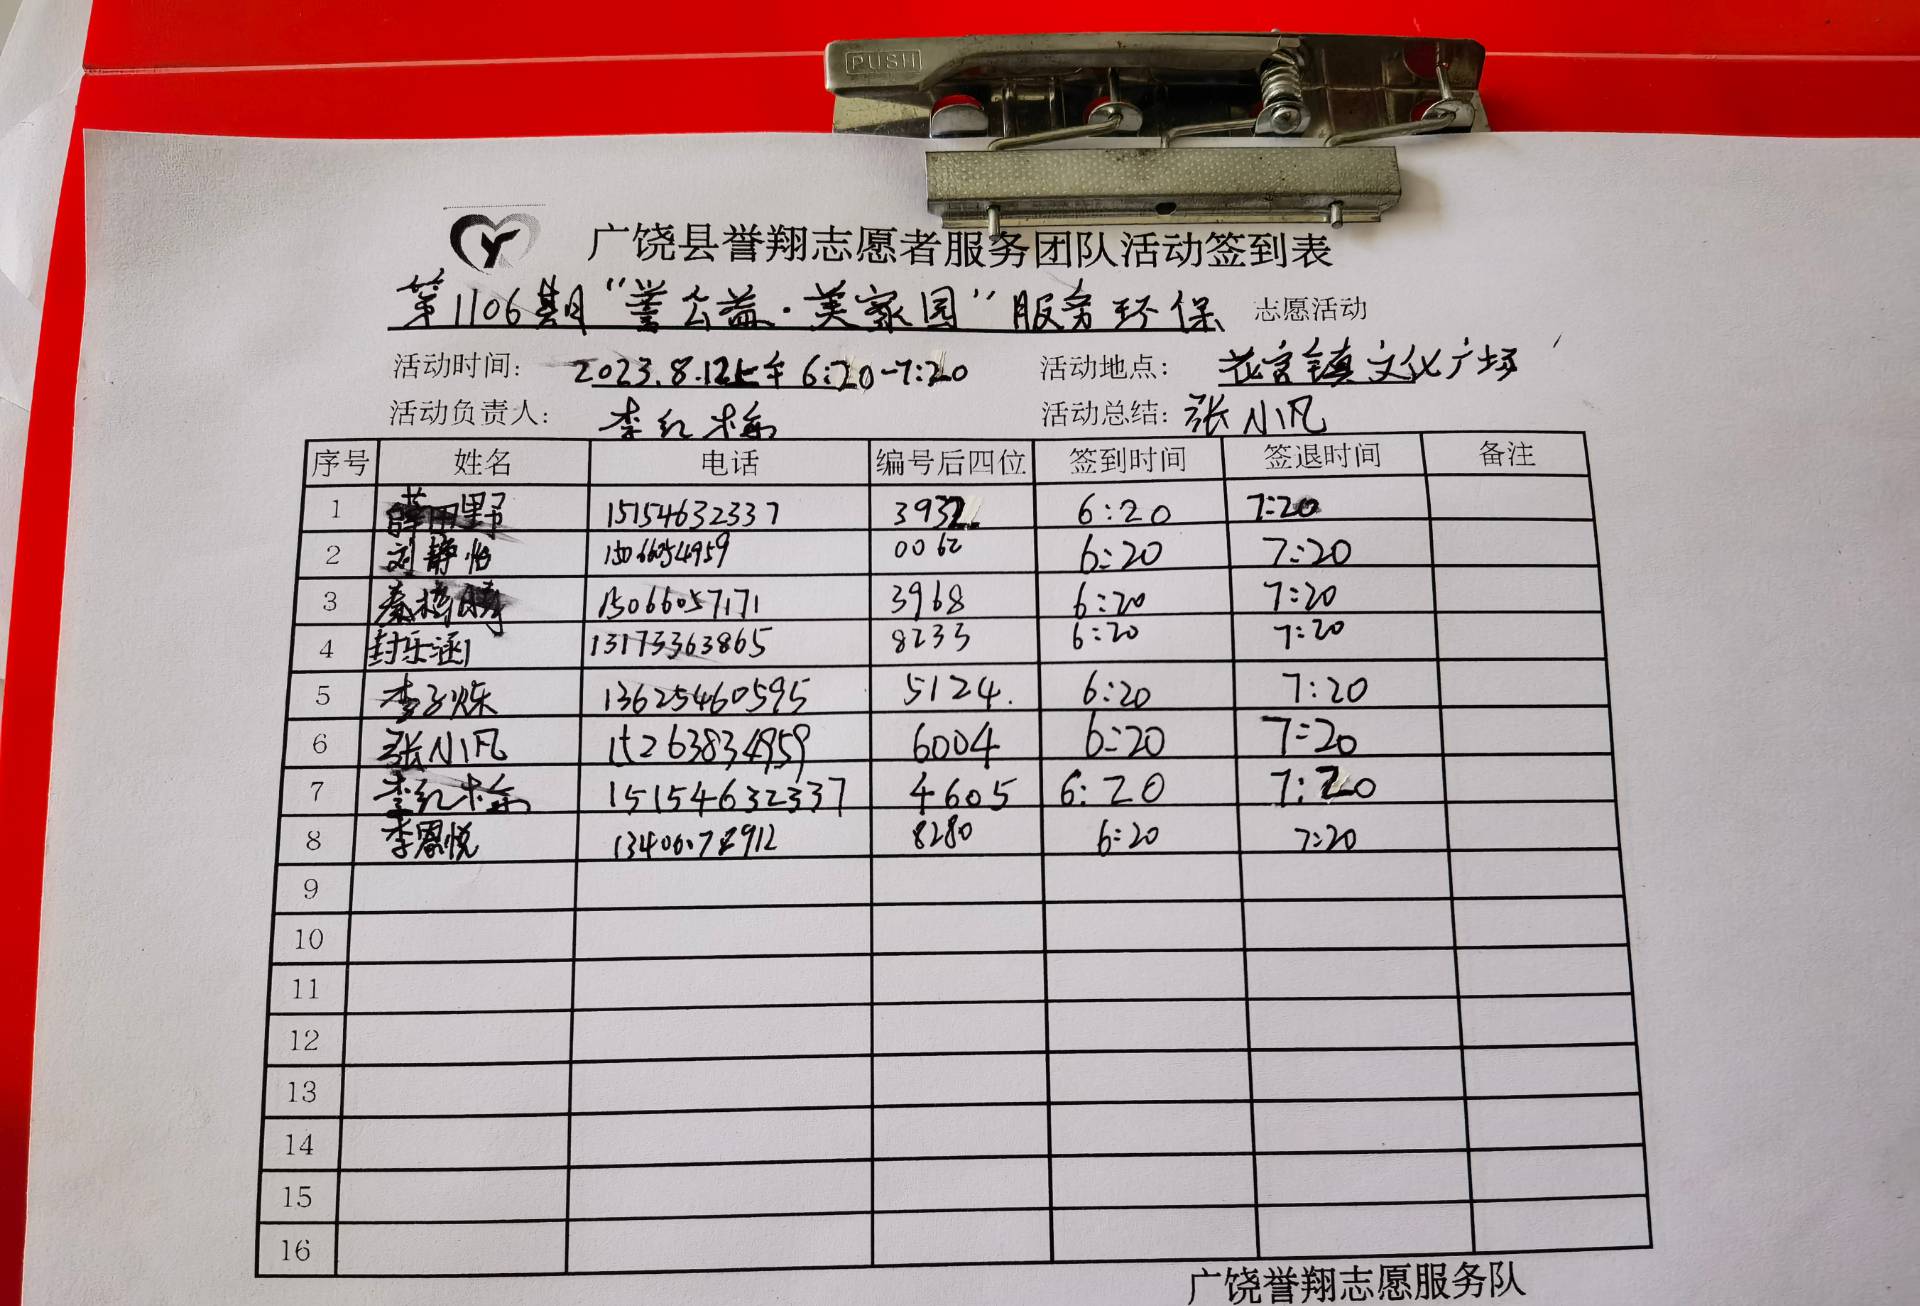 PUSH
广饶县誉翔志愿者服务团队活动签到表
第1106期“誉公益·美家园”服务环保 志愿活动
活动时间: 2023.8.12上午 6:20-7:20 活动地点: 花官镇文化广场
活动负责人: 李红梅 活动总结: 张小凡
序号 姓名 电话 编号后四位 签到时间 签退时间 备注
1 野 15154632337 3932 6:20 7:20
2 刘静怡 15066054959 0062 6:20 7:20
3 秦梓 15066057171 3968 6:20 7:20
4 封乐涵 13173363865 8233 6:20 7:20
5 李子烁 13625460595 5124. 6:20 7:20
6 张小凡 15263834959 6004 6:20 7:20
7 李红梅 15154632337 4605 6:20 7:20
8 李恩悦 8280 6:20 7:20
9
10
11
12
13
14
15
16
广饶誉翔志愿服务队